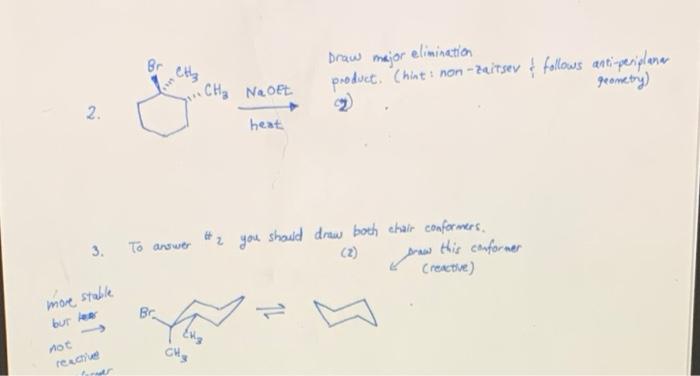 Draw major elimination
product. (hint: non-zaitsev & follows anti-periplanar
geometry)
(2)
2.
Br
CH3
CH3
NaOEt
heat
3. To answer #2 you should draw both chair conformers.
(2)
Draw this conformer
(reactive)
more stable
but
not
reactive
Br
CH3
CH3